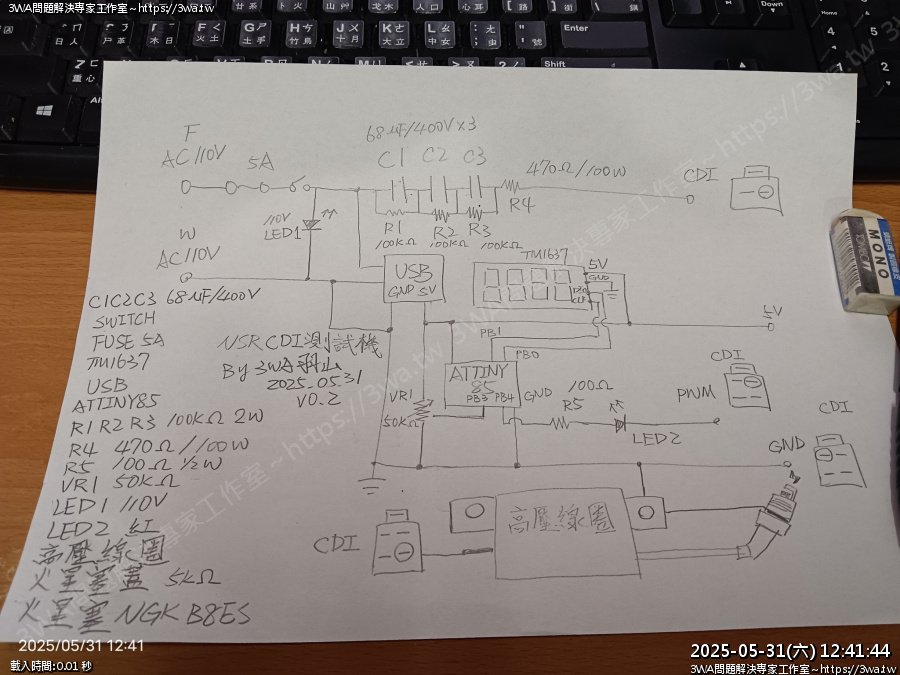 3WA問題解決專家工作室~https://3wa.tw
F
AC 110V
5A
68uF/400V×3
C1 C2 C3
470Ω/100W
R4
CDI
R1 R2 R3
100KΩ 100KΩ 100KΩ
110V
LED1
W
AC 110V
USB
GND 5V
TM1637
5V
GND
DIO
CLK
5V
PB1
PB0
ATTINY
85
PB3 PB4
GND
VR1
50KΩ
100Ω
R5
LED2
PWM
CDI
GND
CDI
NSR CDI測試機
By 3WA羽山
2025.05.31
V0.2
C1C2C3 68uF/400V
SWITCH
FUSE 5A
TM1637
USB
ATTINY85
R1 R2 R3 100KΩ 2W
R4 470Ω/100W
R5 100Ω 1/2W
VR1 50KΩ
LED1 110V
LED2 紅
高壓線圈
火星塞蓋 5KΩ
火星塞 NGK B8ES
CDI
高壓線圈
MONO
TOMBOW
Enter
Shift
Home
Down
Alt
2025/05/31 12:41
載入時間:0.01 秒
2025-05-31(六) 12:41:44
3WA問題解決專家工作室~https://3wa.tw